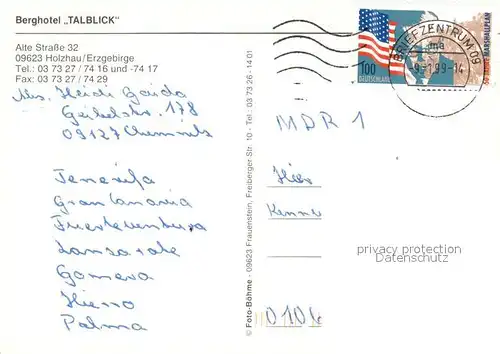 Berghotel „TALBLICK"
Alte Straße 32
09623 Holzhau/Erzgebirge
Tel.: 03 73 27 / 74 16 und -74 17
Fax: 03 73 27 / 74 29
Abs. Heidi Garda
Geibelstr. 178
09127 Chemnitz
Tenerifa
Gran Canaria
Fuerteventura
Lanzarote
Gomera
Hierro
Palma
© Foto-Böhme - 09623 Frauenstein, Freiberger Str. 10 - Tel.: 03 73 26 - 14 01
100
DEUTSCHLAND
50 JAHRE MARSHALLPLAN
BRIEFZENTRUM 09
ma
-9.-1.99-14
MDR 1
Hier
Kenne
0104
privacy protection
Datenschutz